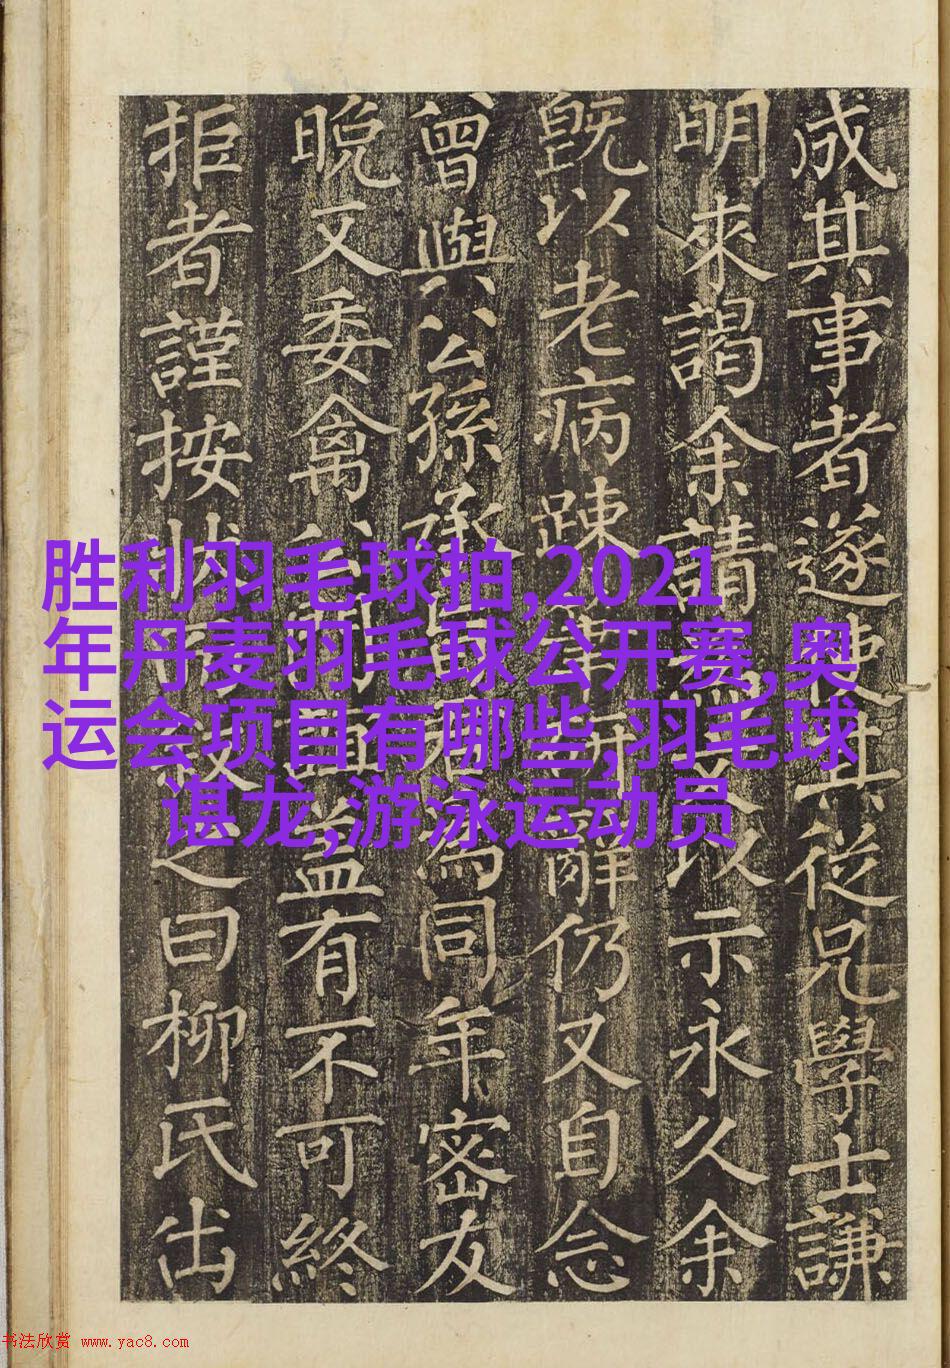 成其事者遂使其從兄學士謙
明來謁余請以示永久余
旣以老病踈辭仍又自念
曾與公孫承為同年密友
晚又委禽公益有不可終
拒者謹按狀之曰柳氏出
胜利羽毛球拍,2021
年丹麦羽毛球公开赛,奥
运会项目有哪些,羽毛球
谌龙,游泳运动员
书法欣赏 www.yac8.com